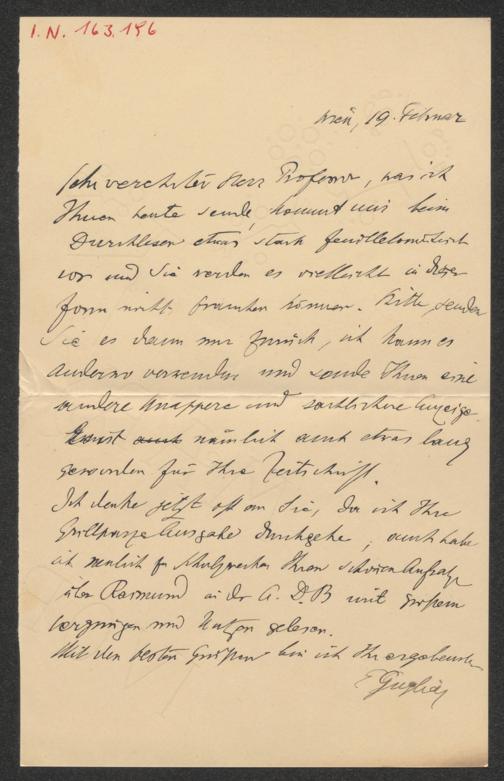 I.N. 163.196
Wien, 19. Februar
Sehr verehrter Herr Professor, was ich
Ihnen heute sende, kommt mir beim
Durchlesen etwas stark feuilletonistisch
vor und Sie werden es vielleicht in dieser
Form nicht brauchen können. Bitte, senden
Sie es dann nur zurück, ich kann es
anderswo verwenden und sende Ihnen eine
andere knappere und sachlichere Anzeige.
Es ist auch nämlich auch etwas lang
geworden für Ihre Zeitschrift.
Ich denke jetzt oft an Sie, da ich Ihre
Grillparzer Ausgabe durchgehe; auch habe
ich neulich zu Schulzwecken Ihren schönen Aufsatz
über Raimund in der A.D.B mit großem
Vergnügen und Nutzen gelesen.
Mit den besten Grüßen bin ich Ihr ergebenster
Guglia